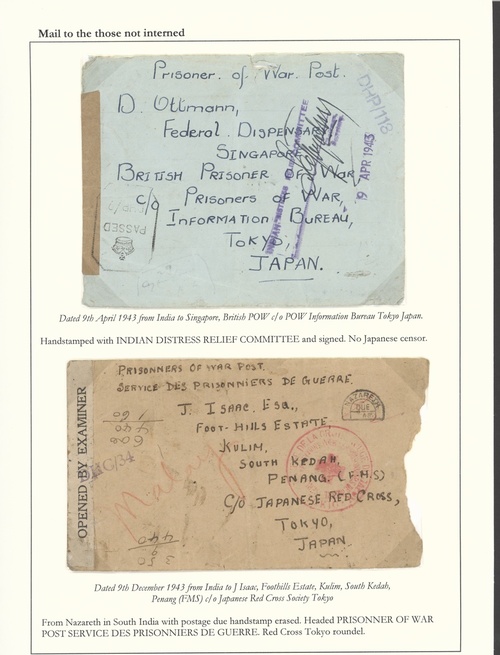 Mail to the those not interned
Prisoner of War Post.
D. Uttmann,
Federal Dispensary
SINGAPORE
BRITISH PRISONER OF WAR
c/o Prisoners of War,
INFORMATION BUREAU,
TOKYO,
JAPAN.
DHP/118
19 APR 1943
PASSED
Dated 9th April 1943 from India to Singapore, British POW c/o POW Information Bureau Tokyo Japan.
Handstamped with INDIAN DISTRESS RELIEF COMMITTEE and signed. No Japanese censor.
PRISONNERS OF WAR POST.
SERVICE DES PRISONNIERS DE GUERRE.
J. ISAAC, ESQ.,
FOOT-HILLS ESTATE,
KULIM,
SOUTH KEDAH,
PENANG. (F.M.S)
C/O JAPANESE RED CROSS,
TOKYO,
JAPAN
Malay
OPENED BY EXAMINER
NAZARETH
Dated 9th December 1943 from India to J Isaac, Foothills Estate, Kulim, South Kedah,
Penang (FMS) c/o Japanese Red Cross Society Tokyo
From Nazareth in South India with postage due handstamp erased. Headed PRISONNER OF WAR
POST SERVICE DES PRISONNIERS DE GUERRE. Red Cross Tokyo roundel.